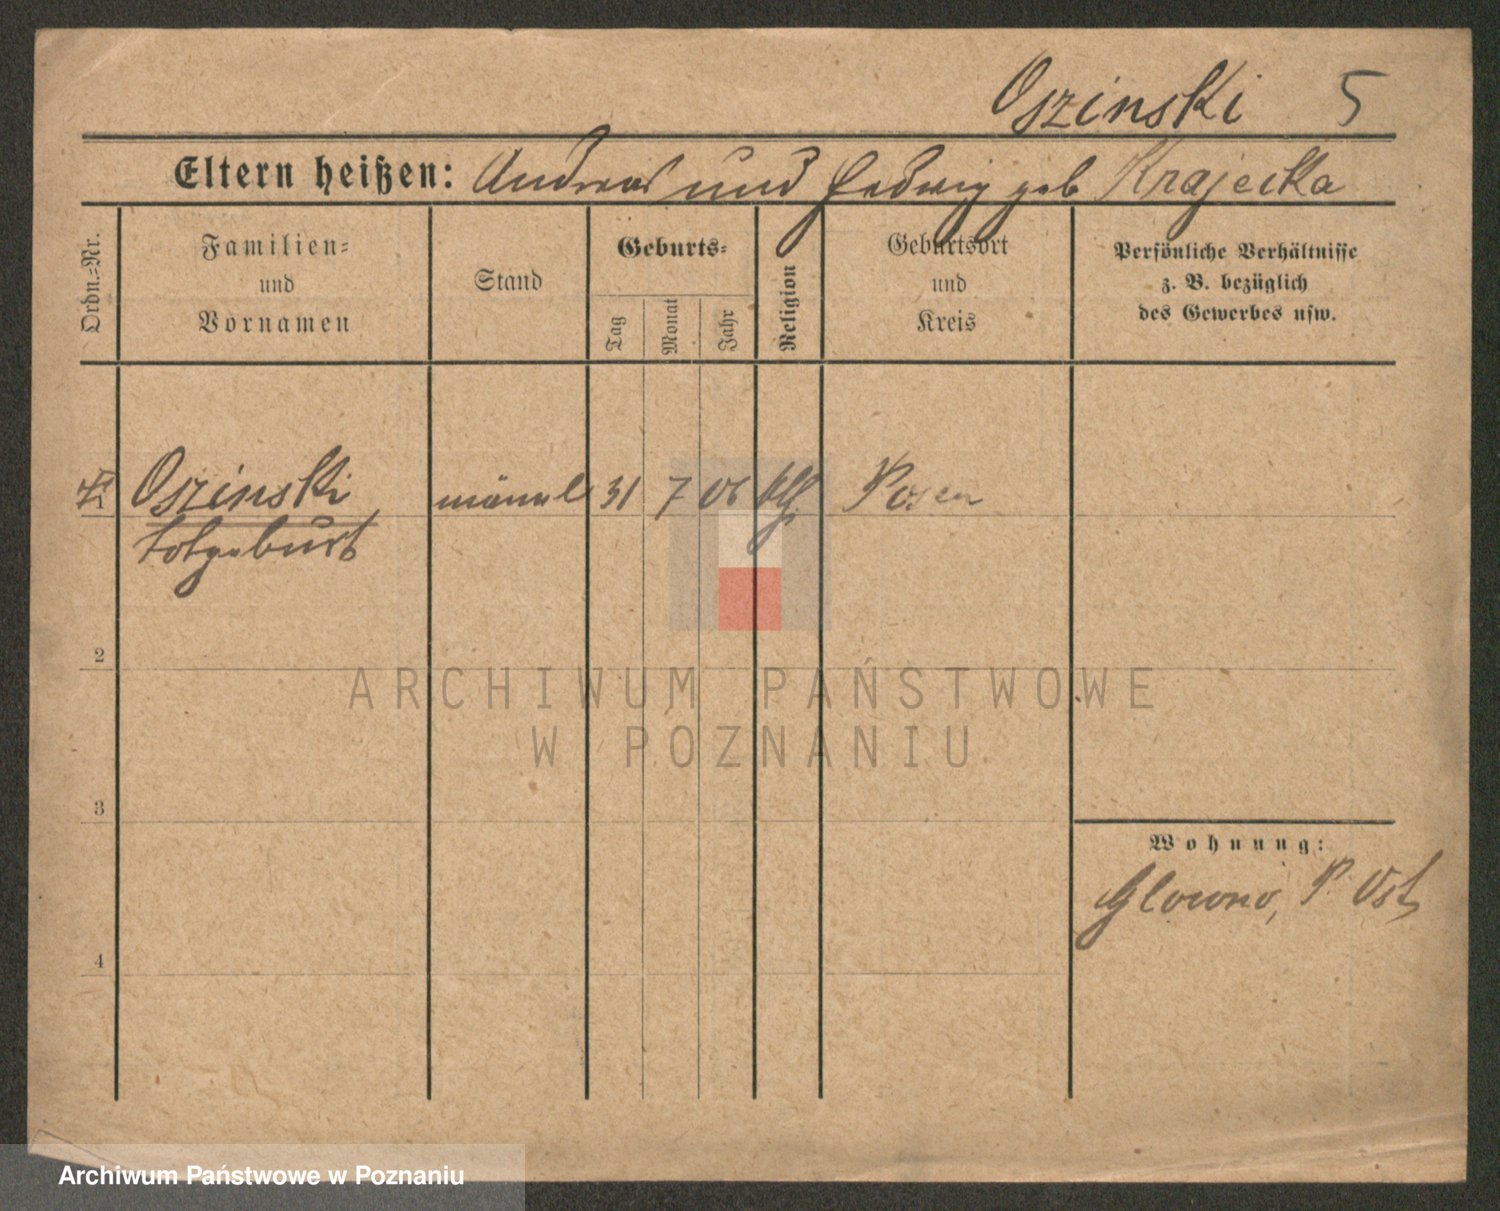 Oszinski 5
Eltern heißen: Andreas und Hedwig geb Krajecka
Ordn.=Nr.
Familien=
und
Vornamen
Stand
Geburts=
Tag
Monat
Jahr
Religion
Geburtsort
und
Kreis
Persönliche Verhältnisse
z. B. bezüglich
des Gewerbes usw.
1 Oszinski männl 31 7 06 Posen
totgeburt
2
3
4
Wohnung:
Glowno, P. Ost
ARCHIWUM PAŃSTWOWE
W POZNANIU
Archiwum Państwowe w Poznaniu